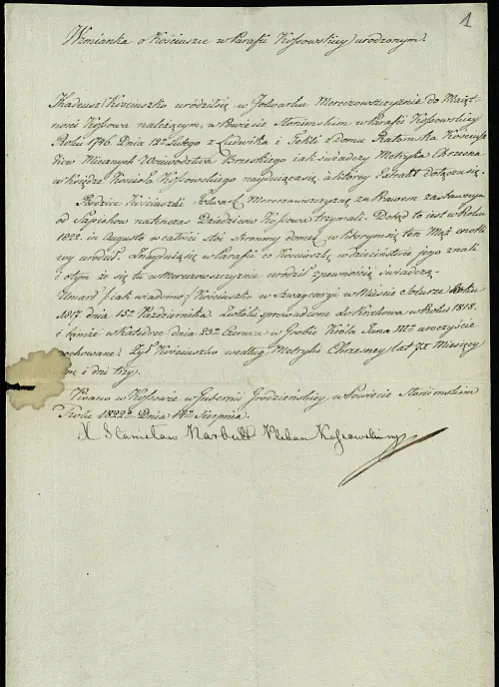 1
Wzmianka o Kościuszce w Parafii Kossowskiey urodzonym.
Thadeusz Kościuszko urodził się w Folwarku Mereczowszczyznie do Maięt-
ności Kossowa należącym, w Powiecie Słonimskim w Parafii Kossowskiey
Roku 1746. Dnia 12º Lutego z Ludwika i Tekli z domu Ratomska Kościusz-
ków Miecznych Woiewodztwa Brzeskiego iak świadczy Metryka Chrzesna
w księdze Kościoła Kossowskiego znayduiąca się, a którey Extrakt dołącza się.
Rodzice Kościuszki Folwark Mereczowszczyznę za Prawem zastawnym
od Sapiehow natenczas Dziedzicow Kossowa trzymali. Dotąd to iest w Roku
1822. in Augusto w całości stoi stronny domek w którym się ten Mąż cnotli-
wy urodził. Znayduią się w Parafii co Kościuszkę w dzieciństwie jego znali
i o tym że się tu w Mereczowszczyznie urodził zpewnością świadczą.
Umarł /:iak wiadomo:/ Kościuszko w Szwaycaryi w Mieście Soluze Roku
1817. dnia 15º Października. Zwłoki sprowadzone do Krakowa w Roku 1818.
i tamże w Katedrze dnia 23º Czerwca w Grobie Króla Jana IIIº uroczyście
pochowane. Żył Kościuszko według Metryki Chrzesney lat 71 Miesięcy
i dni trzy.
Pisano w Kossowie w Gubernii Grodzieńskiey w Powiecie Słonimskim
Roku 1822º Dnia 14º Sierpnia.
X Stanisław Narbutt Pleban Kossowski